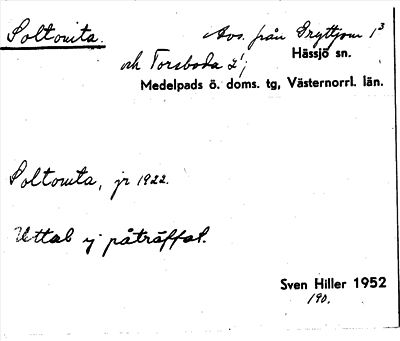 Soltomta. Avs. från Gryttjom 1³
Hässjö sn.
och Torsboda 2¹,
Medelpads ö. doms. tg, Västernorrl. län.
Soltomta, jr 1922.
Uttal ej påträffat.
Sven Hiller 1952
190.